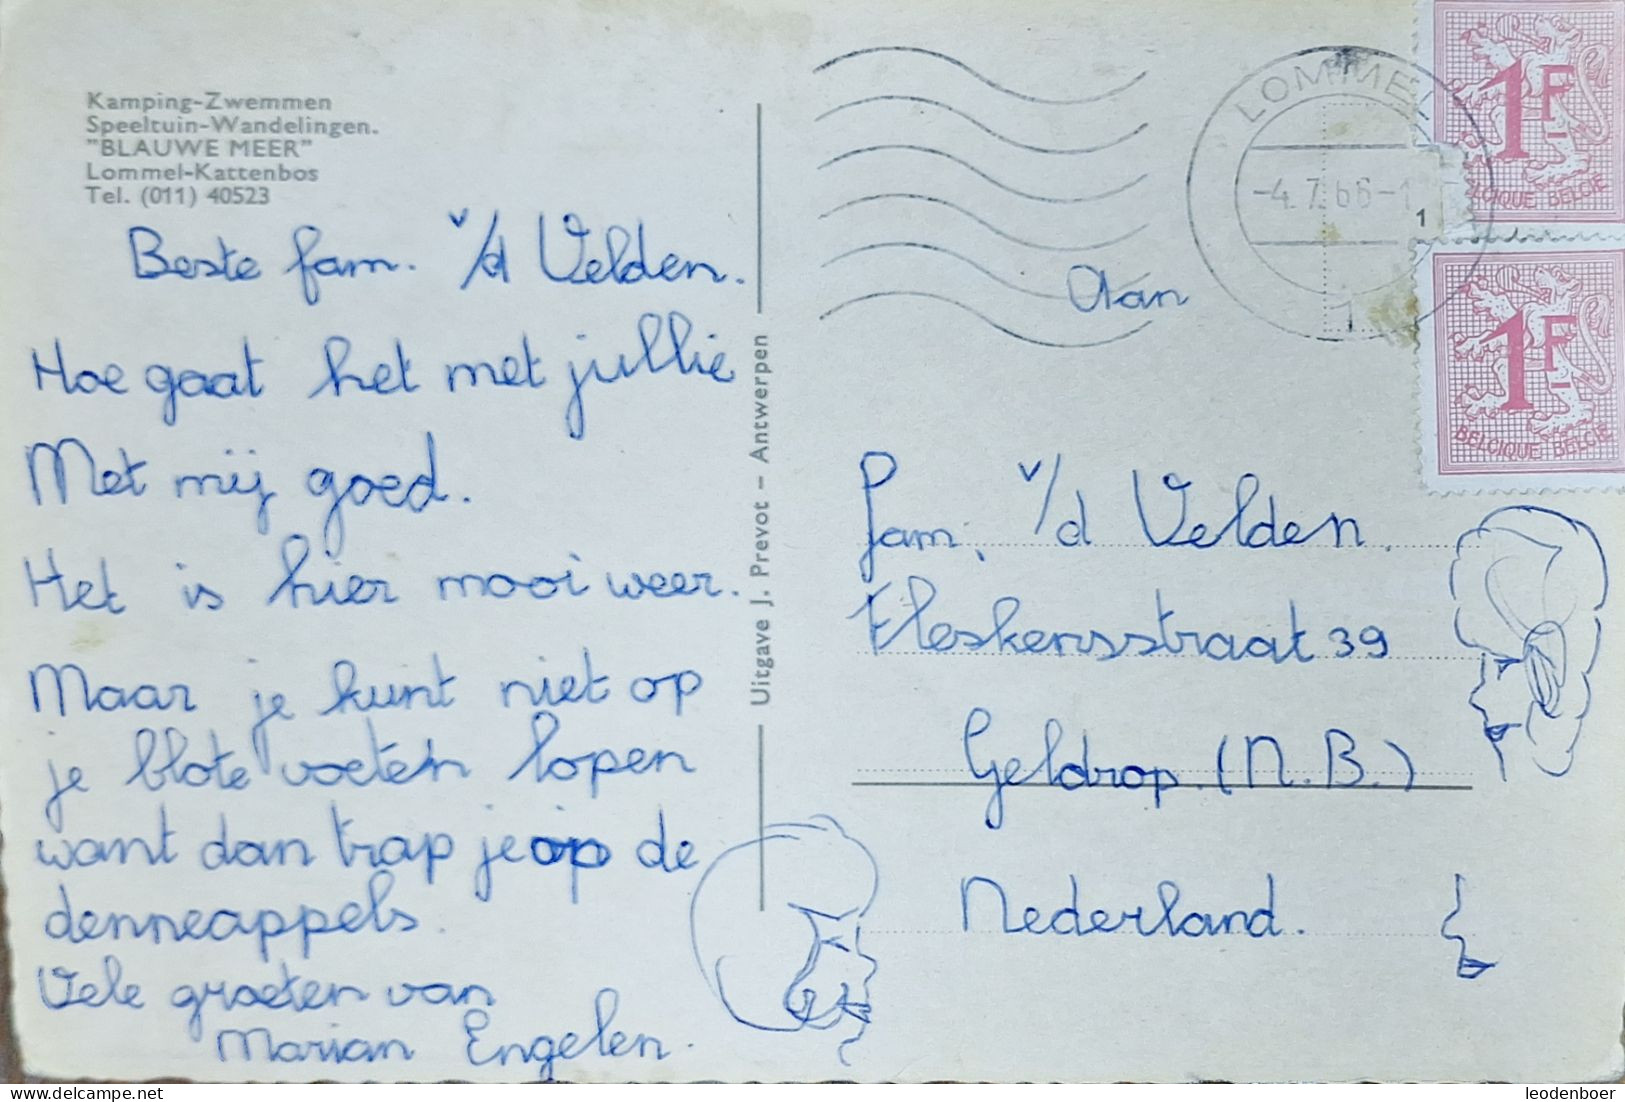 Kamping-Zwemmen
Speeltuin-Wandelingen.
"BLAUWE MEER"
Lommel-Kattenbos
Tel. (011) 40523
Beste fam. v/d Velden.
Hoe gaat het met jullie
Met mij goed.
Het is hier mooi weer.
Maar je kunt niet op
je blote voeten lopen
want dan trap je op de
denneappels.
Vele groeten van
Marian Engelen.
Uitgave J. Prevot – Antwerpen
LOMMEL
-4.7.66-1
1
1
1F
BELGIQUE BELGIE
1F
BELGIQUE BELGIE
Aan
Fam. v/d Velden.
Hleskensstraat 39
Geldrop. (N.B.)
Nederland.
delcampe.net
leodenboer